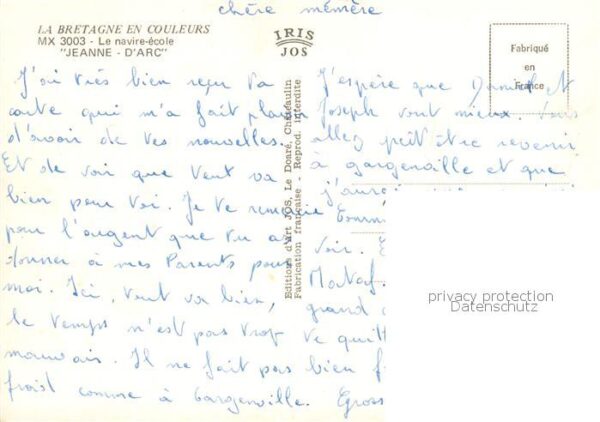 chère mémère
LA BRETAGNE EN COULEURS
MX 3003 - Le navire-école
"JEANNE - D'ARC"
IRIS
JOS
Fabriqué
en
France
J'ai très bien reçu ta
carte qui m'a fait plaisir
d'avoir de tes nouvelles.
Et de voir que tout va
bien pour toi. Je te remercie
pour l'argent que tu as
donner à mes Parents pour
moi. Ici, tout va bien,
le temps n'est pas trop
mauvais. Il ne fait pas bien
frais comme à Gargenville.
Editions d'art JOS, Le Doaré, Châteaulin
Fabrication française - Reprod. interdite
J'espère que et
Joseph vont mieux. Vous
allez peut être revenir
à gargenville et que
j'aurai
voir.
grand
te quitte
Gross
privacy protection
Datenschutz